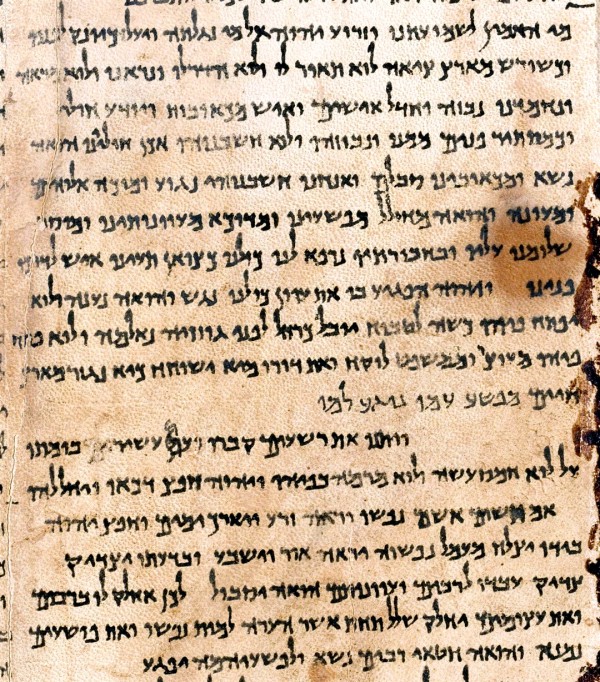 מי האמין לשמועתנו וזרוע יהוה אל מי נגלתה ויעל כיונק לפניו
וכשורש מארץ ציה לוא תאור לו ולוא הדר לו ונראנו ולוא מראה
ונחמדנו נבזה וחדל אישים ואיש מכאובות ויודע חולי
וכמסתר פנים ממנו ונבוזהו ולוא חשבנוהו אכן חוליינו הואה
נשא ומכאובינו סבלם ואנחנו חשבנוהו נגוע ומוכה אלוהים
ומעונה והואה מחולל מפשעינו ומדוכא מעוונותינו ומוסר
שלומנו עליו ובחבורתיו נרפא לנו כולנו כצואן תעינו איש לדרכו
פנינו ויהוה הפגיע בו את עוון כולנו נגש והואה נענה ולוא
יפתח פיהו כשה לטבוח יובל כרחל לפני גוזזיה נאלמה ולוא פתח
פיהו מעוצר וממשפט לוקח ואת דורו מיא ישוחח כיא נגזר מארץ
חיים מפשע עמו נוגע למו
ויתנו את רשעים קברו ועם עשירים בומתו
על לוא חמס עשה ולוא מרמה בפיהו ויהוה חפץ דכאו ויחללהו
אם תשים אשם נפשו יראה זרע ויארך ימים וחפץ יהוה
בידו יצלח מעמל נפשוה יראה אור וישבע ובדעתו יצדיק
צדיק עבדו לרבים ועוונותם הואה יסבול לכן אחלק לו ברבים
ואת עצומים יחלק שלל תחת אשר הערה למות נפשו ואת פושעים
נמנה והואה חטאי רבים נשא ולפשעיהמה יפגע